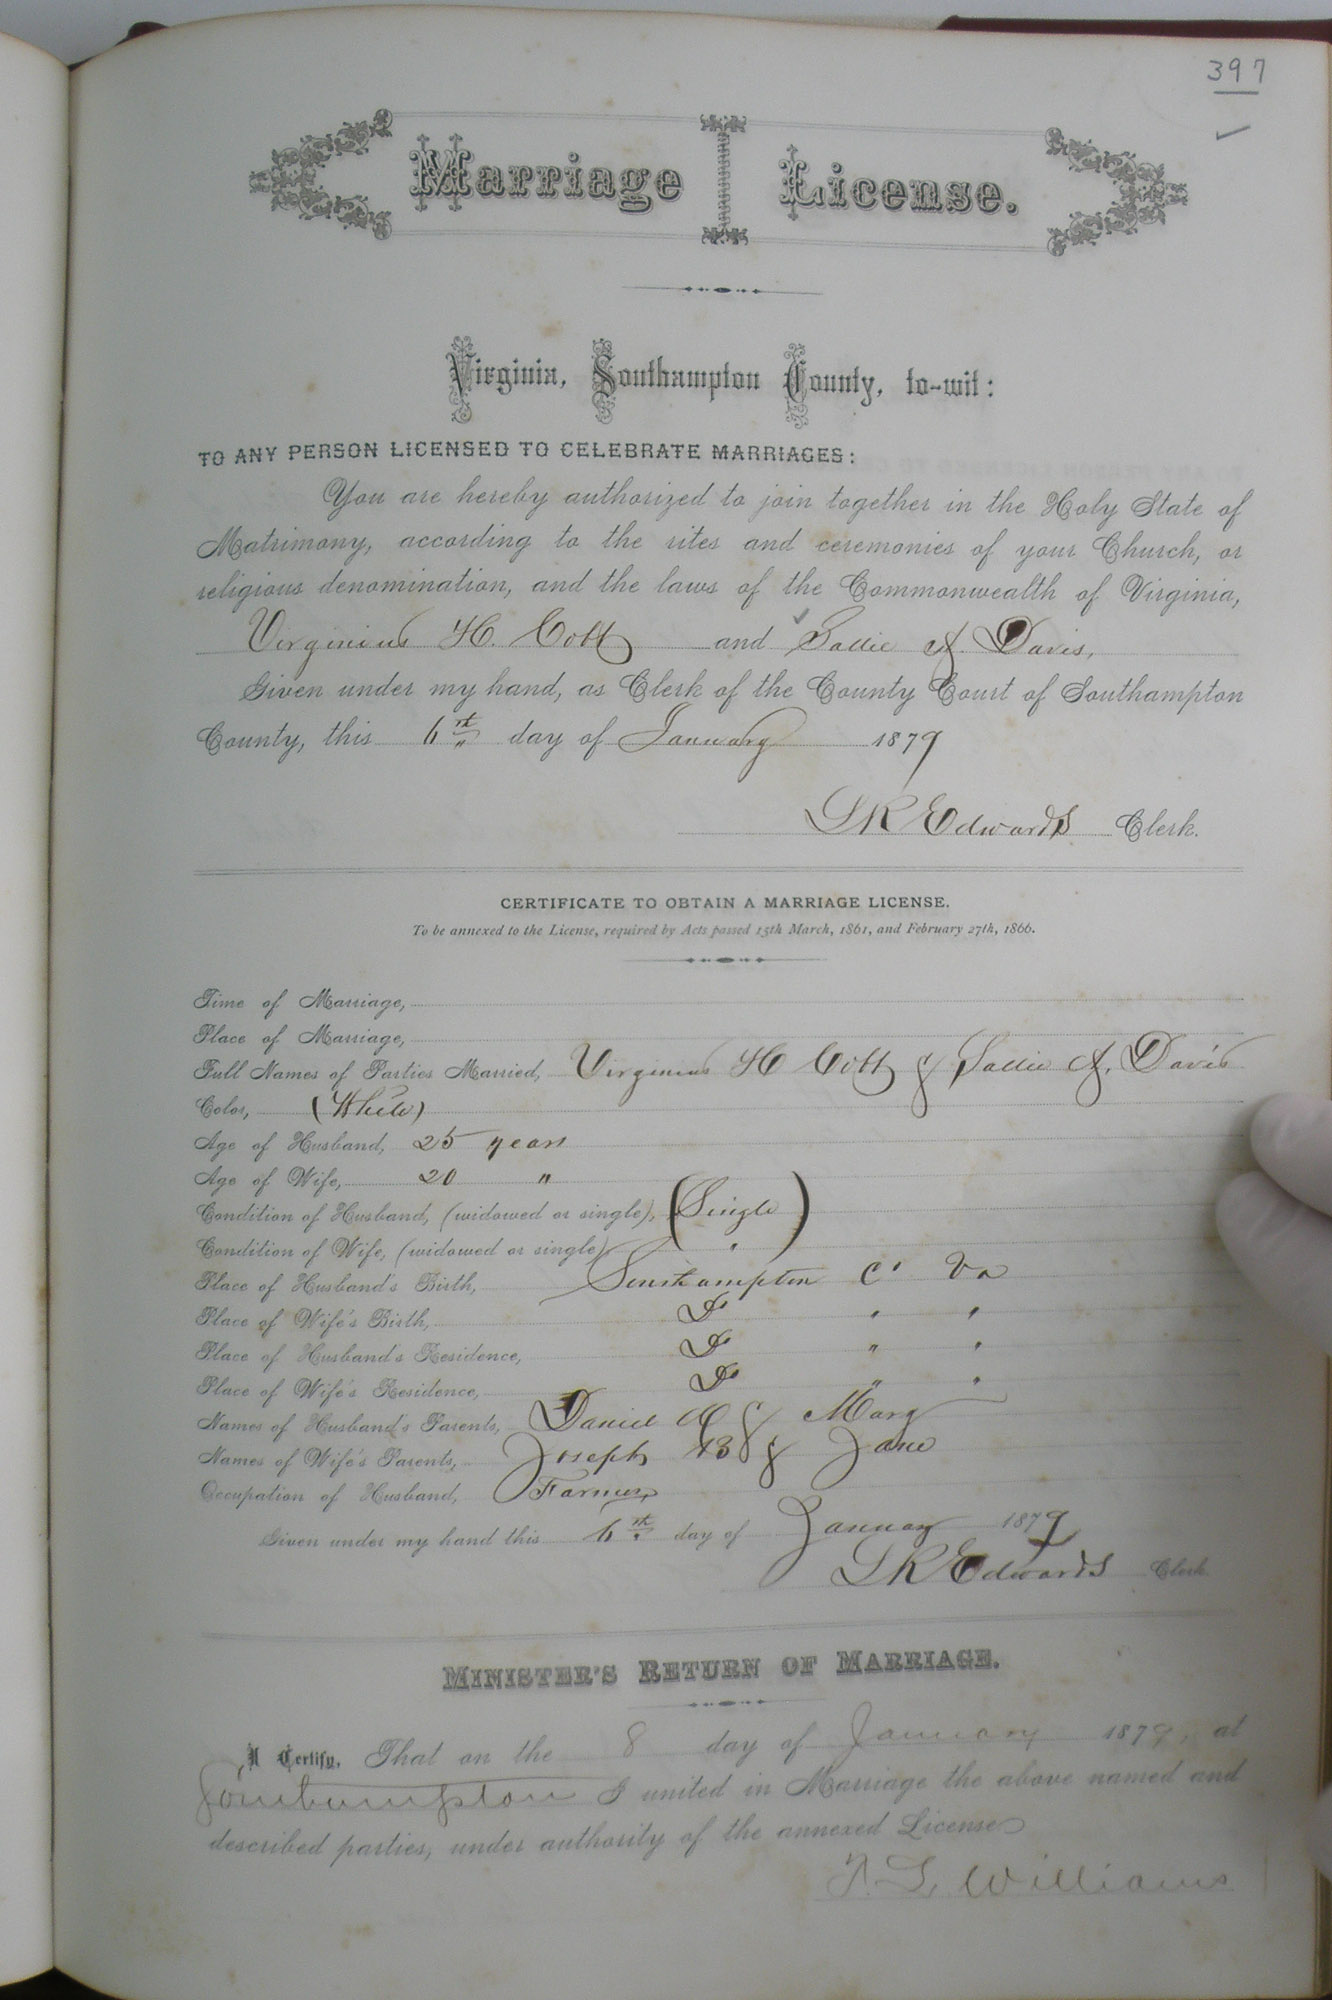 397
Marriage License.
Virginia, Southampton County, to-wit:
TO ANY PERSON LICENSED TO CELEBRATE MARRIAGES:
You are hereby authorized to join together in the Holy State of
Matrimony, according to the rites and ceremonies of your Church, or
religious denomination, and the laws of the Commonwealth of Virginia,
Virginius H. Cobb and Sallie A. Davis,
Given under my hand, as Clerk of the County Court of Southampton
County, this 6th day of January 1879
L R Edwards Clerk.
CERTIFICATE TO OBTAIN A MARRIAGE LICENSE.
To be annexed to the License, required by Acts passed 15th March, 1861, and February 27th, 1866.
Time of Marriage,
Place of Marriage,
Full Names of Parties Married, Virginius H Cobb & Sallie A. Davis
Color, (White)
Age of Husband, 25 years
Age of Wife, 20 "
Condition of Husband, (widowed or single), (Single)
Condition of Wife, (widowed or single) "
Place of Husband's Birth, Southampton Co Va
Place of Wife's Birth, Do " "
Place of Husband's Residence, Do " "
Place of Wife's Residence, Do " "
Names of Husband's Parents, Daniel & Mary
Names of Wife's Parents, Joseph B & Jane
Occupation of Husband, Farmer
Given under my hand this 6th day of January 1879
L R Edwards Clerk.
MINISTER'S RETURN OF MARRIAGE.
I Certify, That on the 8 day of January 1879, at
Southampton I united in Marriage the above named and
described parties, under authority of the annexed License
Williams